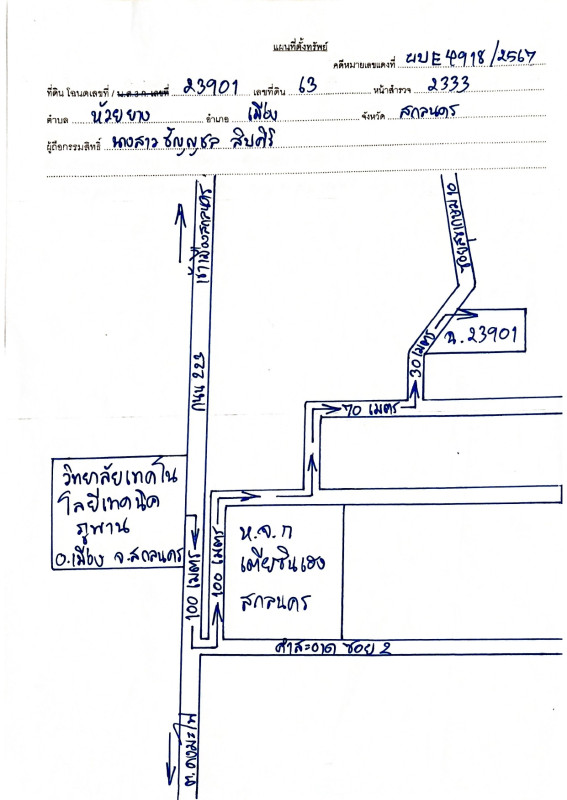 แผนที่ตั้งทรัพย์
คดีหมายเลขแดงที่ ผบE4918/2567
ที่ดิน โฉนดเลขที่ / น.ส.3 ก. เลขที่ 23901 เลขที่ดิน 63 หน้าสำรวจ 2333
ตำบล ห้วยยาง อำเภอ เมือง จังหวัด สกลนคร
ผู้ถือกรรมสิทธิ์ นางสาว ชัญญชล สิบศิริ
เข้าเมืองสกลนคร
ถนน 223
ซอย 10
ฉ.23901
30 เมตร
70 เมตร
วิทยาลัยเทคโน
โลยีเทคนิค
ภูพาน
อ.เมือง จ.สกลนคร
100 เมตร
100 เมตร
ห.จ.ก
เตียชินเฮง
สกลนคร
คำสะอาด ซอย 2
ต.ดงมะไฟ